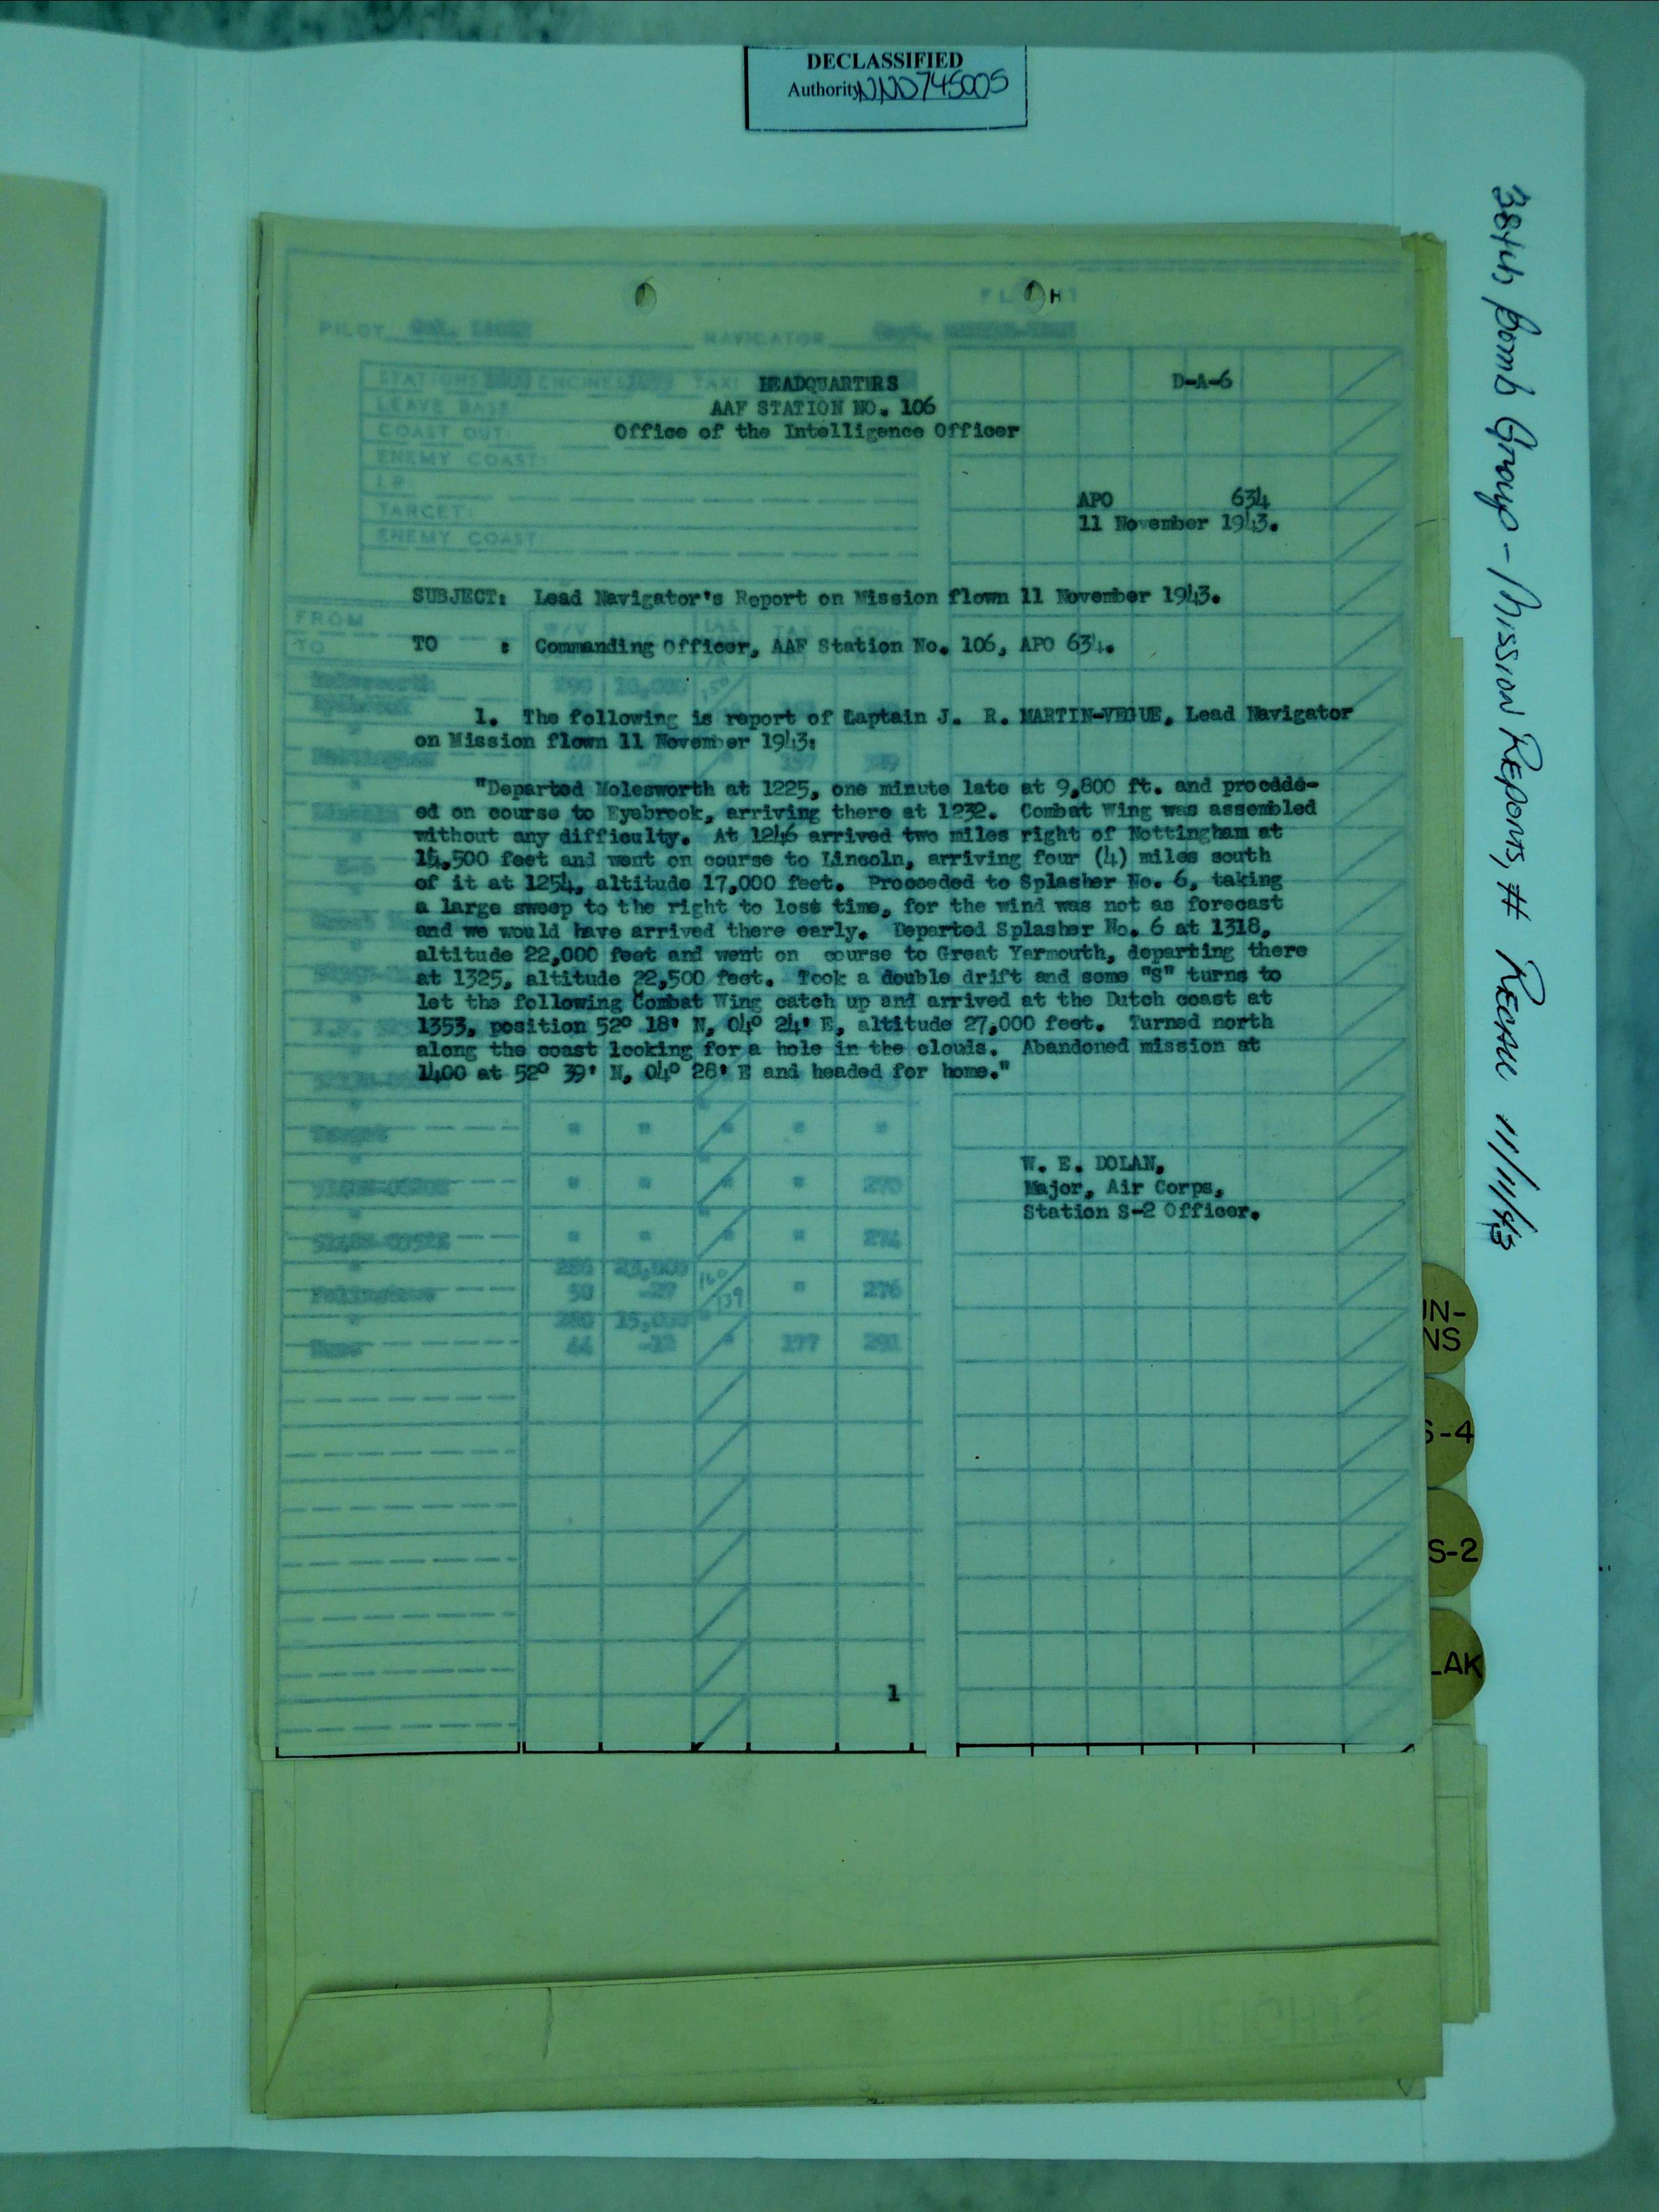 DECLASSIFIED
Authority NND745005
384th Bomb Group - Mission Reports, # RECALL 11/11/43
HEADQUARTERS
D-A-6
AAF STATION NO. 106
Office of the Intelligence Officer
APO 634
11 November 1943.
SUBJECT: Lead Navigator's Report on Mission flown 11 November 1943.
TO : Commanding Officer, AAF Station No. 106, APO 634.
1. The following is report of Captain J. R. MARTIN-VEGUE, Lead Navigator
on Mission flown 11 November 1943:
"Departed Molesworth at 1225, one minute late at 9,800 ft. and procede-
ed on course to Eyebrook, arriving there at 1232. Combat Wing was assembled
without any difficulty. At 1246 arrived two miles right of Nottingham at
14,500 feet and went on course to Lincoln, arriving four (4) miles south
of it at 1254, altitude 17,000 feet. Proceeded to Splasher No. 6, taking
a large sweep to the right to lose time, for the wind was not as forecast
and we would have arrived there early. Departed Splasher No. 6 at 1318,
altitude 22,000 feet and went on course to Great Yarmouth, departing there
at 1325, altitude 22,500 feet. Took a double drift and some "S" turns to
let the following Combat Wing catch up and arrived at the Dutch coast at
1353, position 52° 18' N, 04° 24' E, altitude 27,000 feet. Turned north
along the coast looking for a hole in the clouds. Abandoned mission at
1400 at 52° 39' N, 04° 28' E and headed for home."
W. E. DOLAN,
Major, Air Corps,
Station S-2 Officer.
1
PILOT
NAVIGATOR
STATIONS ENGINES TAXI
LEAVE BASE
COAST OUT:
ENEMY COAST:
I.P.
TARGET:
ENEMY COAST:
FROM
TO
Target
270
274
280 23,000 160
50 -27 139 276
280 15,000
44 -12 177 291
IN-
NS
S-4
S-2
LAK